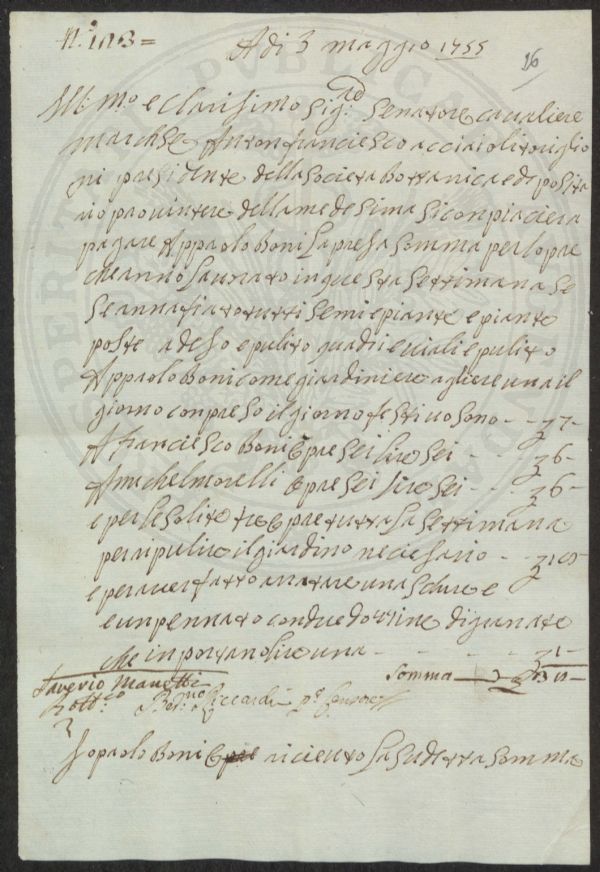 N.º 103 =
A di 3 maggio 1755
26
Ill mo e Clarisimo Sig.re Senatore cavaliere
marchese Anton franciesco acciaioli toriglio
ni presidente della Societa bottanica e deposita
rio provintere della medesima si conpiaciera
pagare A ppaolo boni la presa somma per lopre
che anno lavorato in questa settimana se
se annafiato tutti semi e piante e piante
poste adeso e pulito quadri e viali e pulito
A ppaolo boni come giardiniere a lliere una il
giorno conpreso il giorno festivo sono - - 7 -
A franciesco boni opre sei lire sei - - 6 -
A michel morelli opre sei lire sei - - 6 -
e per le solite tre opre tutta la settimana
per ripulire il giardino neciesario - -
e per aver fatto arrotare una schure e
e un pennato con due dozzine di granate
che inportano lire una - - - - - 1 -
Saverio Manetti Somma
Riccardi
Io paolo boni o riceuto la sudetta somma